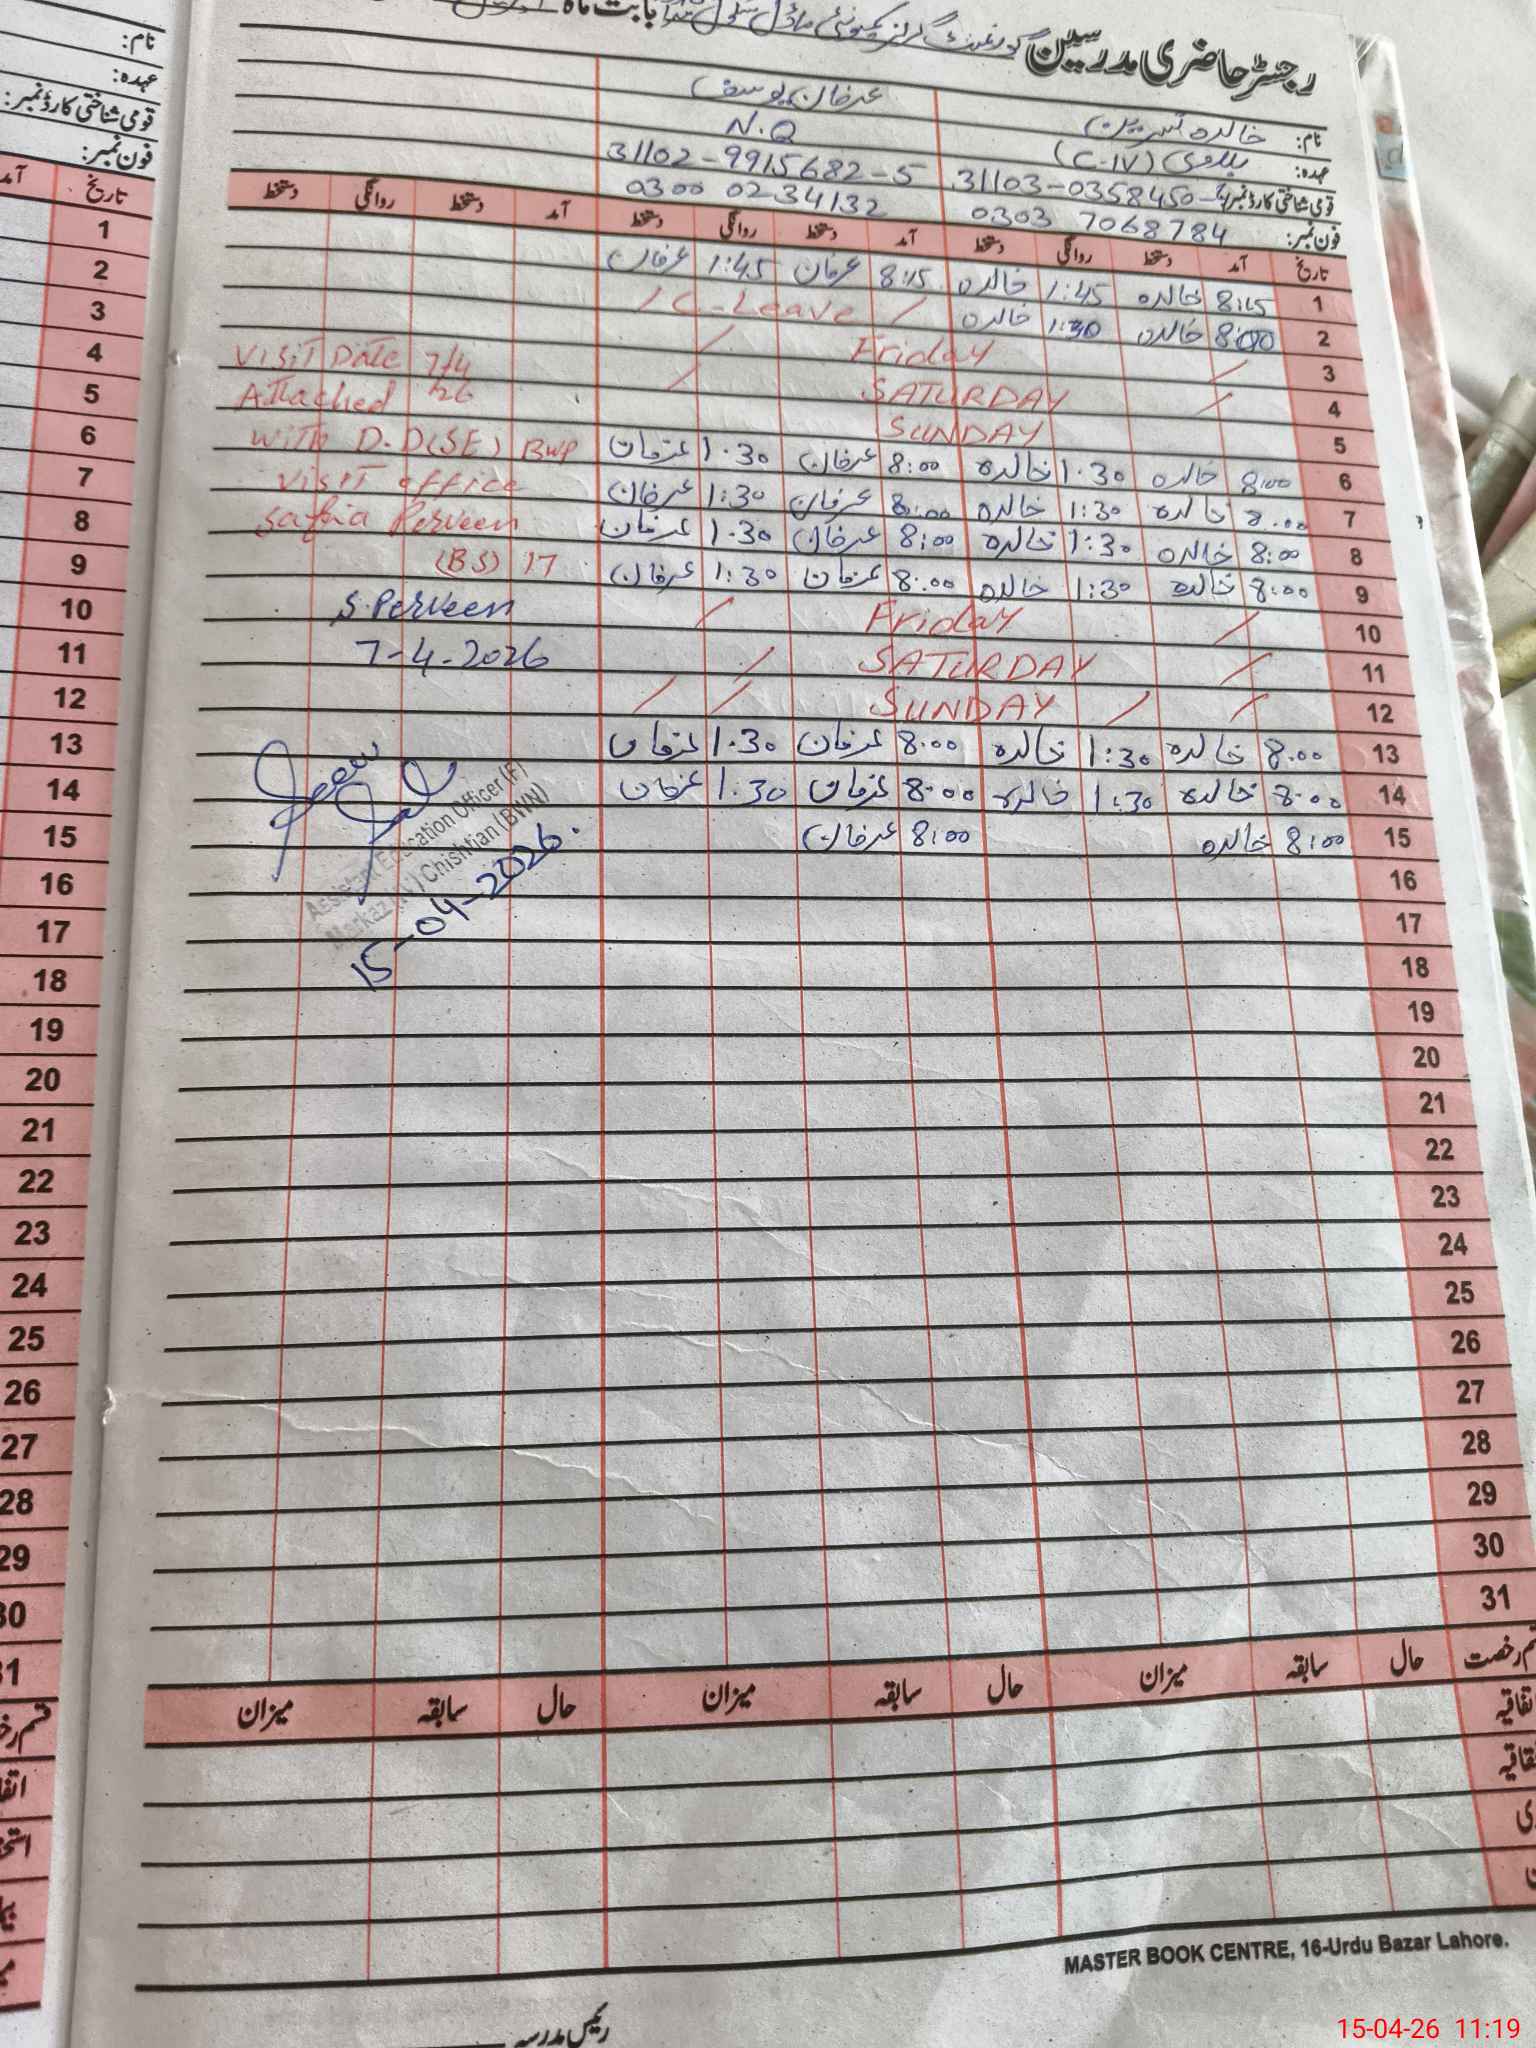 رجسٹر حاضری مدرسین گورنمنٹ گرلز کمیونٹی ماڈل سکول بابت ماہ
نام: خالدہ نسرین عرفان یوسف
عہدہ: (C-IV) N.Q
قومی شناختی کارڈ نمبر: 31103-0358450- 31102-9915682-5
فون نمبر: 0303 7068784 0300 0234132
تاریخ آمد دستخط روانگی دستخط آمد دستخط روانگی دستخط آمد دستخط روانگی دستخط
1 8:15 خالدہ 1:45 خالدہ 8:15 عرفان 1:45 عرفان
2 8:00 خالدہ 1:30 خالدہ / C-Leave /
3 / Friday /
4 / SATURDAY /
5 SUNDAY
6 8:00 خالدہ 1:30 خالدہ 8:00 عرفان 1:30 عرفان
7 8:00 خالدہ 1:30 خالدہ 8:00 عرفان 1:30 عرفان
8 8:00 خالدہ 1:30 خالدہ 8:00 عرفان 1:30 عرفان
9 8:00 خالدہ 1:30 خالدہ 8:00 عرفان 1:30 عرفان
10 / Friday /
11 / SATURDAY /
12 / / SUNDAY / /
13 8:00 خالدہ 1:30 خالدہ 8:00 عرفان 1:30 عرفان
14 8:00 خالدہ 1:30 خالدہ 8:00 عرفان 1:30 عرفان
15 8:00 خالدہ 8:00 عرفان
16
17
18
19
20
21
22
23
24
25
26
27
28
29
30
31
VISIT Date 7/4
Attached 26
With D.D(SE) BWP
Visit office
Safia Perveen
(BS) 17
S.Perveen
7-4-2026
Assistant Education Officer (F)
Markaz (IV) Chishtian (BWN)
15-04-2026.
رخصت حال سابقہ میزان حال سابقہ میزان حال سابقہ میزان
MASTER BOOK CENTRE, 16-Urdu Bazar Lahore.
رئیس مدرسہ
نام:
عہدہ:
قومی شناختی کارڈ نمبر:
فون نمبر:
تاریخ آمد
1
2
3
4
5
6
7
8
9
10
11
12
13
14
15
16
17
18
19
20
21
22
23
24
25
26
27
28
29
30
31
15-04-26 11:19